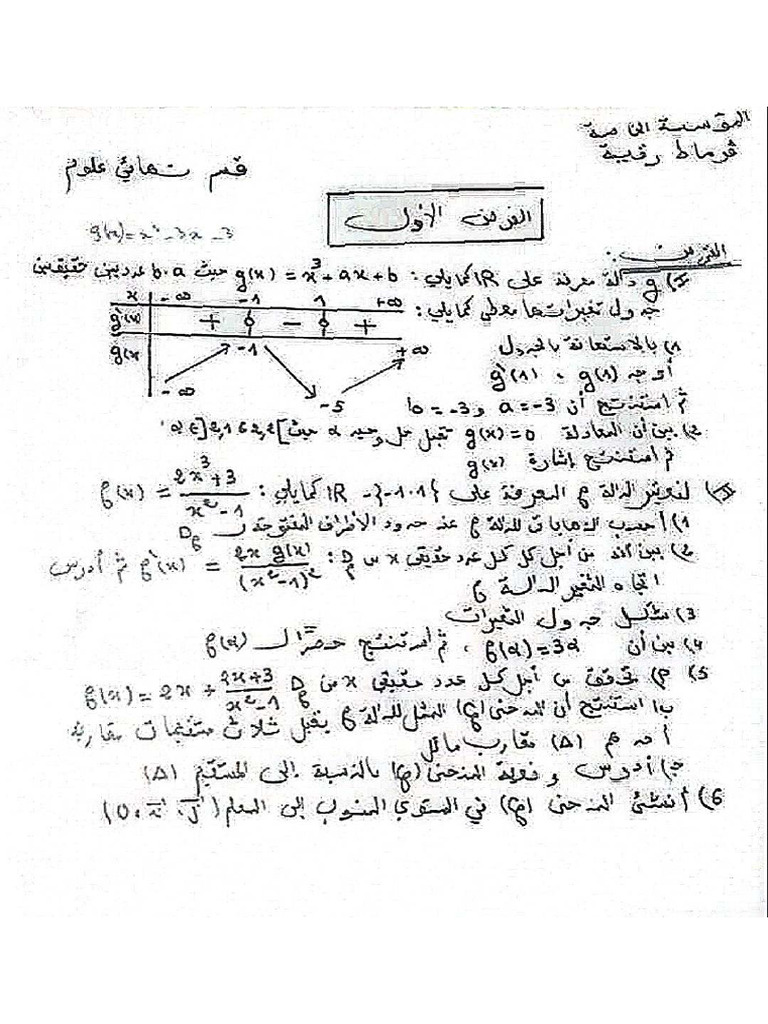 المؤسسة الخاصة
ڤرماط رقية
قسم نهائي علوم
الفرض الأول
g(x)=x³-3x-3
التمرين:
I) g دالة معرفة على IR كمايلي: g(x) = x³+ax+b حيث b.a عددين حقيقين
جدول تغيراتها معطى كمايلي:
x -∞ -1 1 +∞
g'(x) + 0 - 0 +
g(x) -∞ -1 -5 +∞
1) بالاستعانة بالجدول
أوجد g(1) ، g'(1)
ثم استنتج أن a=-3 و b=-3
2) بين أن المعادلة g(x)=0 تقبل حل وحيد α حيث α∈]2,1 2,2[
ثم استنتج إشارة g(x)
II) لتكن الدالة f المعرفة على IR-{-1.1} كمايلي: f(x) = (2x³+3)/(x²-1)
1) أحسب النهايات للدالة f عند حدود الأطراف المفتوحة لـ D_f
2) بين أنه من أجل كل كل عدد حقيقي x من D_f: f'(x) = (2x g(x))/(x²-1)² ثم أدرس
اتجاه التغير الدالة f
3) شكل جدول التغيرات
4) بين أن f(α)=3α ، ثم استنتج حصرا لـ f(α)
5) م) تحقق من أجل كل عدد حقيقي x من D_f f(x)=2x+(2x+3)/(x²-1)
ب) استنتج أن المنحنى (f) الممثل للدالة f يقبل ثلاث مستقيمات مقاربة
أحدهم (Δ) مقارب مائل
ج) أدرس وضعية المنحنى (f) بالنسبة إلى المستقيم (Δ)
6) أنشئ المنحنى (f) في المستوي المنسوب إلى المعلم (O.i.j)